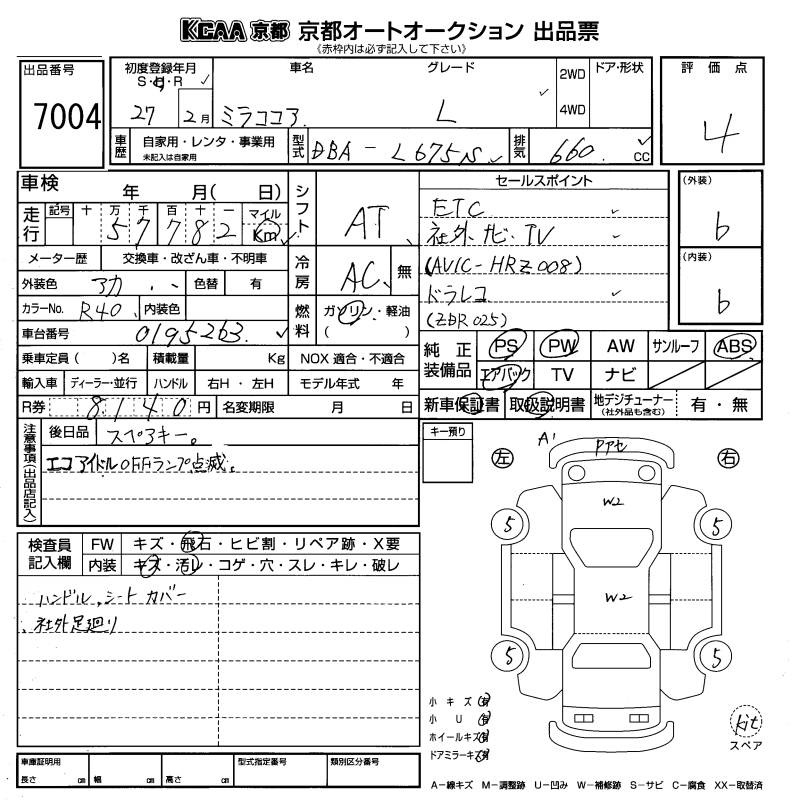 KCAA 京都 京都オートオークション 出品票
《赤枠内は必ず記入して下さい》
出品番号
7004
初度登録年月
S・H・R
27 2月
車名
ミラココア
グレード
L
2WD
4WD
ドア・形状
評価点
4
車歴
自家用・レンタ・事業用
未記入は自家用
型式
DBA-L675S
排気
660. CC
車検 年 月( 日)
走行
記号 十 万 千 百 十 一 マイル
5 7 7 8 2 Km
メーター歴 交換車・改ざん車・不明車
外装色 アカ 色替 有
カラーNo. R40 内装色
車台番号 0195263
乗車定員 ( )名 積載量 Kg NOX 適合・不適合
輸入車 ディーラー・並行 ハンドル 右H・左H モデル年式 年
R券 8140円 名変期限 月 日
シフト AT
冷房 AC 無
燃料 ガソリン・軽油
( )
セールスポイント
ETC
社外ナビ・TV
(AVIC-HRZ008)
ドラレコ
(ZDR025)
(外装)
b
(内装)
b
純正装備品
PS PW AW サンルーフ ABS
エアバック TV ナビ
新車保証書 取扱説明書 地デジチューナー
(社外品も含む) 有・無
注意事項(出品店記入)
後日品 スペアキー。
エコアイドルOFFランプ点滅。
キー預り
検査員記入欄
FW キズ・飛石・ヒビ割・リペア跡・X要
内装 キズ・汚レ・コゲ・穴・スレ・キレ・破レ
ハンドル,シートカバー
社外足廻り
左 右
A1
W2
W2
5 5
5 5
小キズ 有
小U 有
ホイールキズ 有
ドアミラーキズ 有
kit
スペア
車庫証明用
長さ cm 幅 cm 高さ cm
型式指定番号
類別区分番号
A-線キズ M-調整跡 U-凹み W-補修跡 S-サビ C-腐食 XX-取替済